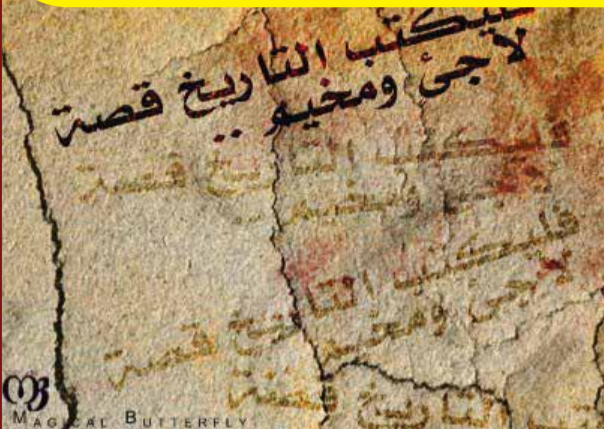 فليكتب التاريخ قصة
لاجئ ومخيم ..
فليكتب التاريخ قصة
لاجئ ومخيم ..
فليكتب التاريخ قصة
لاجئ ومخيم
التاريخ قصة
MAGICAL BUTTERFLY